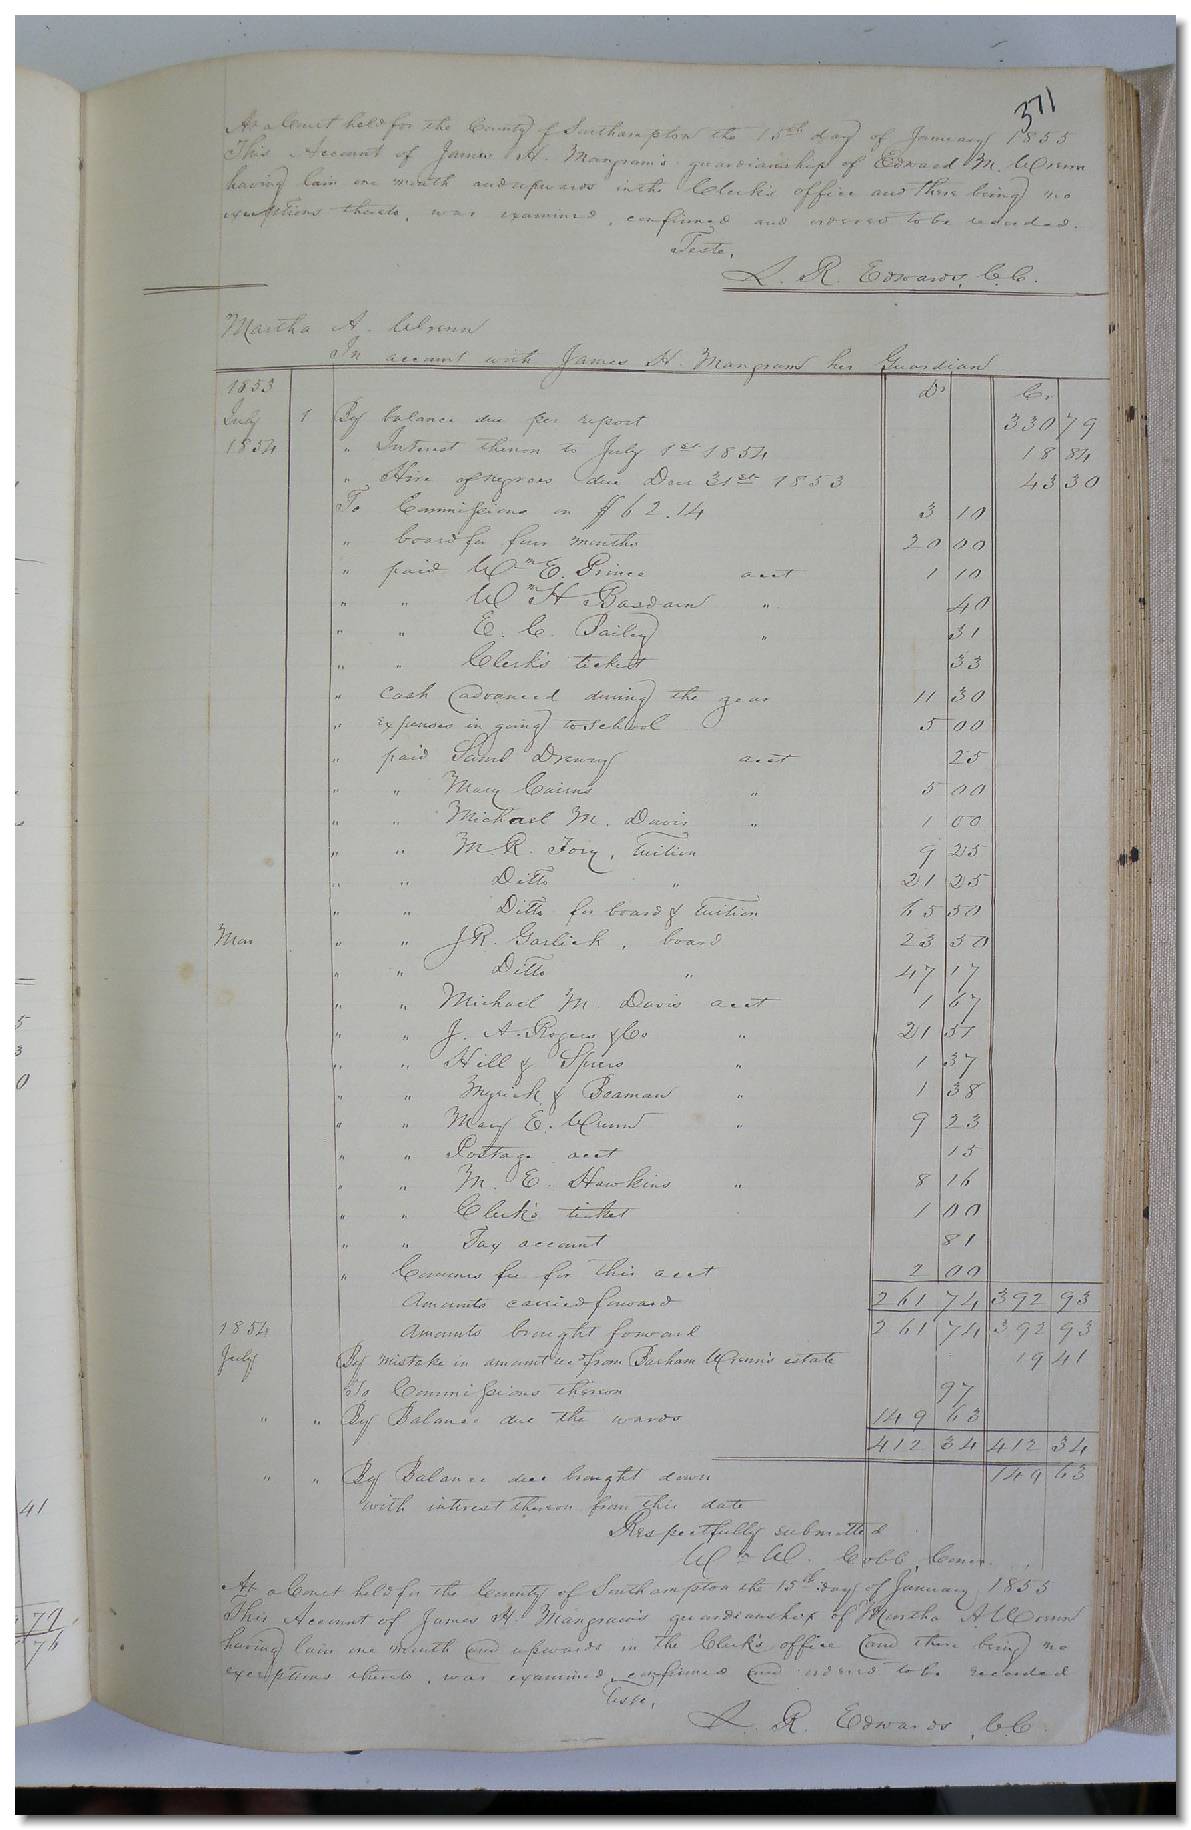 371
At a Court held for the County of Southampton the 15th day of January 1855
This Account of James H. Mangram's guardianship of Edward M. Wrenn
having lain one month and upwards in the Clerk's office and there being no
exceptions thereto, was examined, confirmed and ordered to be recorded.
Teste,
L. R. Edwards, C.C.
Martha A. Wrenn
In account with James H. Mangram her Guardian
1853 Dr Cr
July 1 By balance due per report 330 79
1854 " Interest thereon to July 1st 1854 18 84
" Hire of negroes due Decr 31st 1853 43 30
To Commissions on $62.14 3 10
" board for four months 20 00
" paid Wm E. Prince acct 1 10
" " Wm H. " 40
" " E. C. Bailey " 31
" " Clerk's ticket 33
" cash advanced during the year 11 30
" expenses in going to school 5 00
" paid Saml Drewry acct 25
" " Mary Cairns " 5 00
" " Michael M. Davis " 1 00
" " M. R. Fory, Tuition 9 25
" " Ditto " 21 25
" " Ditto for board & Tuition 65 50
Mar " " J. R. Garlick, board 23 50
" " Ditto " 47 17
" " Michael M. Davis acct 1 67
" " J. A. Rogers & Co " 21 51
" " Hill & Spiers " 1 37
" " Myrick & Beaman " 1 38
" " Mary E. Wrenn " 9 23
" " Postage acct 15
" " M. E. Hawkins " 8 16
" " Clerk's ticket 1 00
" " Tax account 81
" Commrs fee for this acct 2 00
Amounts carried forward 261 74 392 93
1854 Amounts brought forward 261 74 392 93
July By mistake in amount recd from Barham Wrenn's estate 19 41
To Commissions thereon 97
" " By Balance due the wards 149 63
412 34 412 34
" " By Balance due brought down 149 63
with interest thereon from this date
Respectfully submitted
Wm W. Cobb, Comr.
At a Court held for the County of Southampton the 15th day of January 1855
This Account of James H. Mangram's guardianship of Martha A Wrenn
having lain one month and upwards in the Clerk's office and there being no
exceptions thereto, was examined, confirmed and ordered to be recorded
Teste,
L. R. Edwards, C.C.
5
3
0
41
79
76